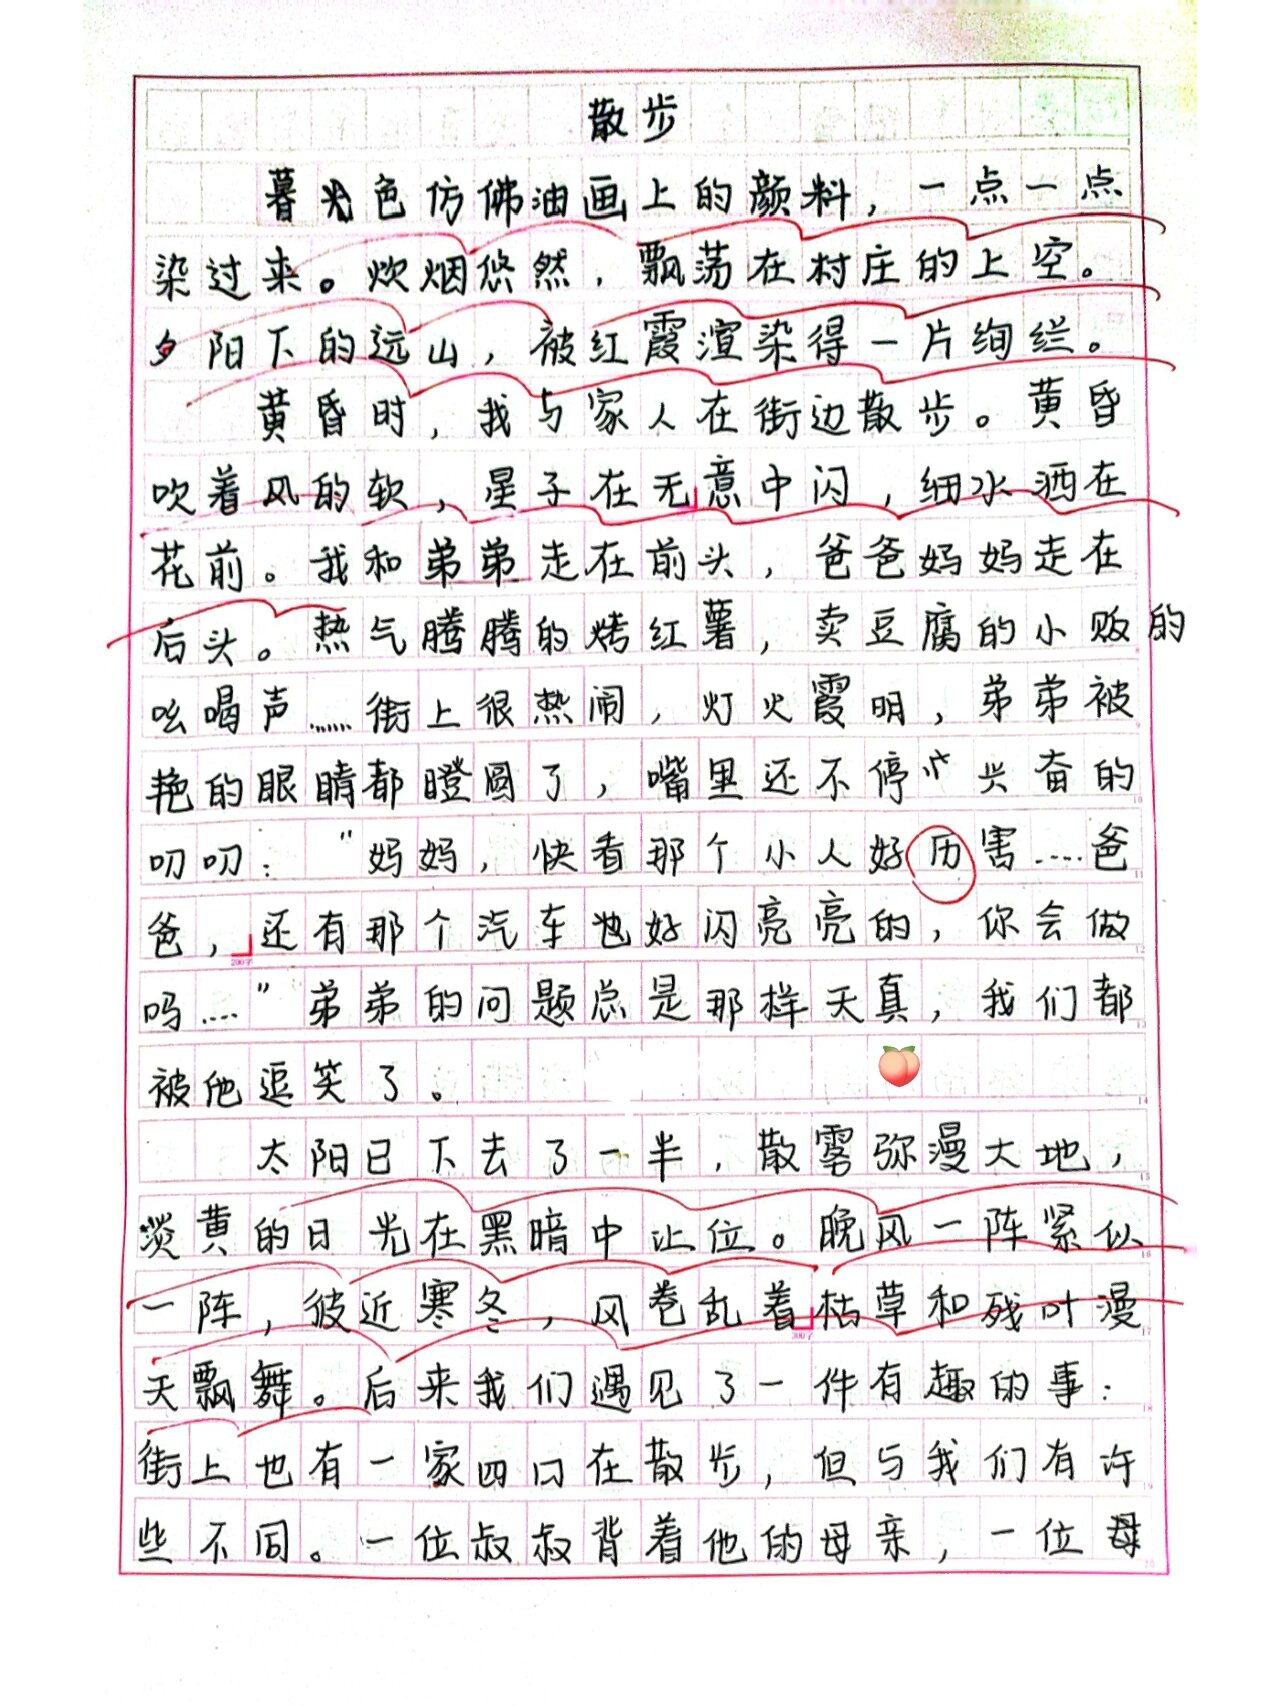 散步
暮光色仿佛油画上的颜料，一点一点
染过来。炊烟悠然，飘荡在村庄的上空。
夕阳下的远山，被红霞渲染得一片绚烂。
黄昏时，我与家人在街边散步。黄昏
吹着风的软，星子在无意中闪，细水洒在
花前。我和弟弟走在前头，爸爸妈妈走在
后头。热气腾腾的烤红薯，卖豆腐的小贩的
吆喝声……街上很热闹，灯火霞明，弟弟被
艳的眼睛都瞪圆了，嘴里还不停 兴奋的
叨叨：“妈妈，快看那个小人好历害……爸
爸，还有那个汽车也好闪亮亮的，你会做
200字
吗……”弟弟的问题总是那样天真，我们都
被他逗笑了。
太阳已下去了一半，散雾弥漫大地，
淡黄的日光在黑暗中让位。晚风一阵紧似
一阵，彼近寒冬，风卷乱着枯草和残叶漫
300字
天飘舞。后来我们遇见了一件有趣的事：
街上也有一家四口在散步，但与我们有许
些不同。一位叔叔背着他的母亲，一位母